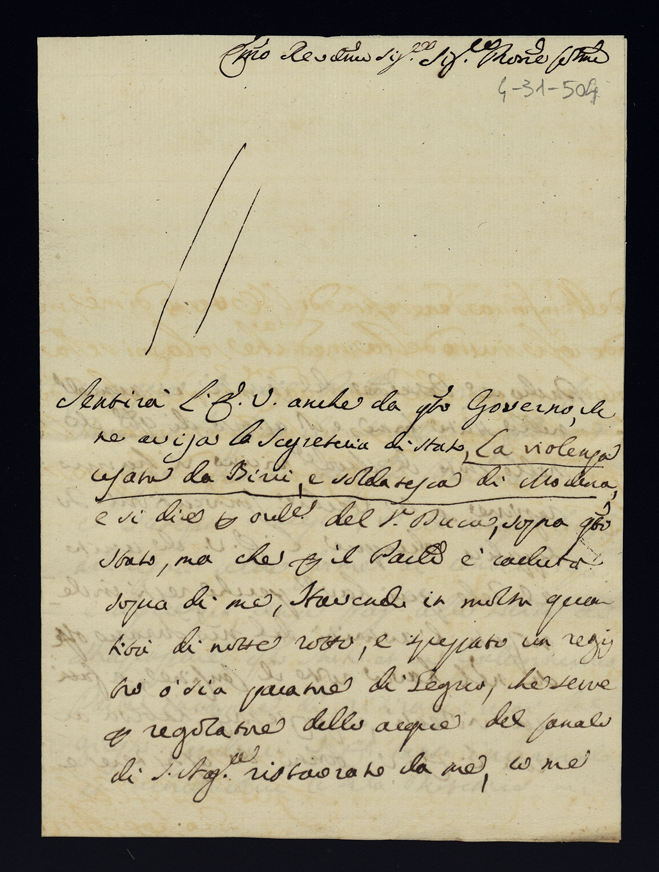 Ill.mo Rev.mo Sig.re Sig.re Prone
4-31-504
Sentirà l'E. V. anche da q.to Governo, che
ne avisa la Segreteria di stato, La violenza
usata da Birri, e soldatesca di Modena,
e si dice p ord.e del S.r Duca, sopra q.to
stato, ma che p il è caduta
sopra di me, stavendo in molta quan
tità di notte rotto, e spezzato un regis
tro o' sia paratore di Legno, che serve
p regolatore delle acque del Canale
di S. Ag.ta ristaorato da me, come